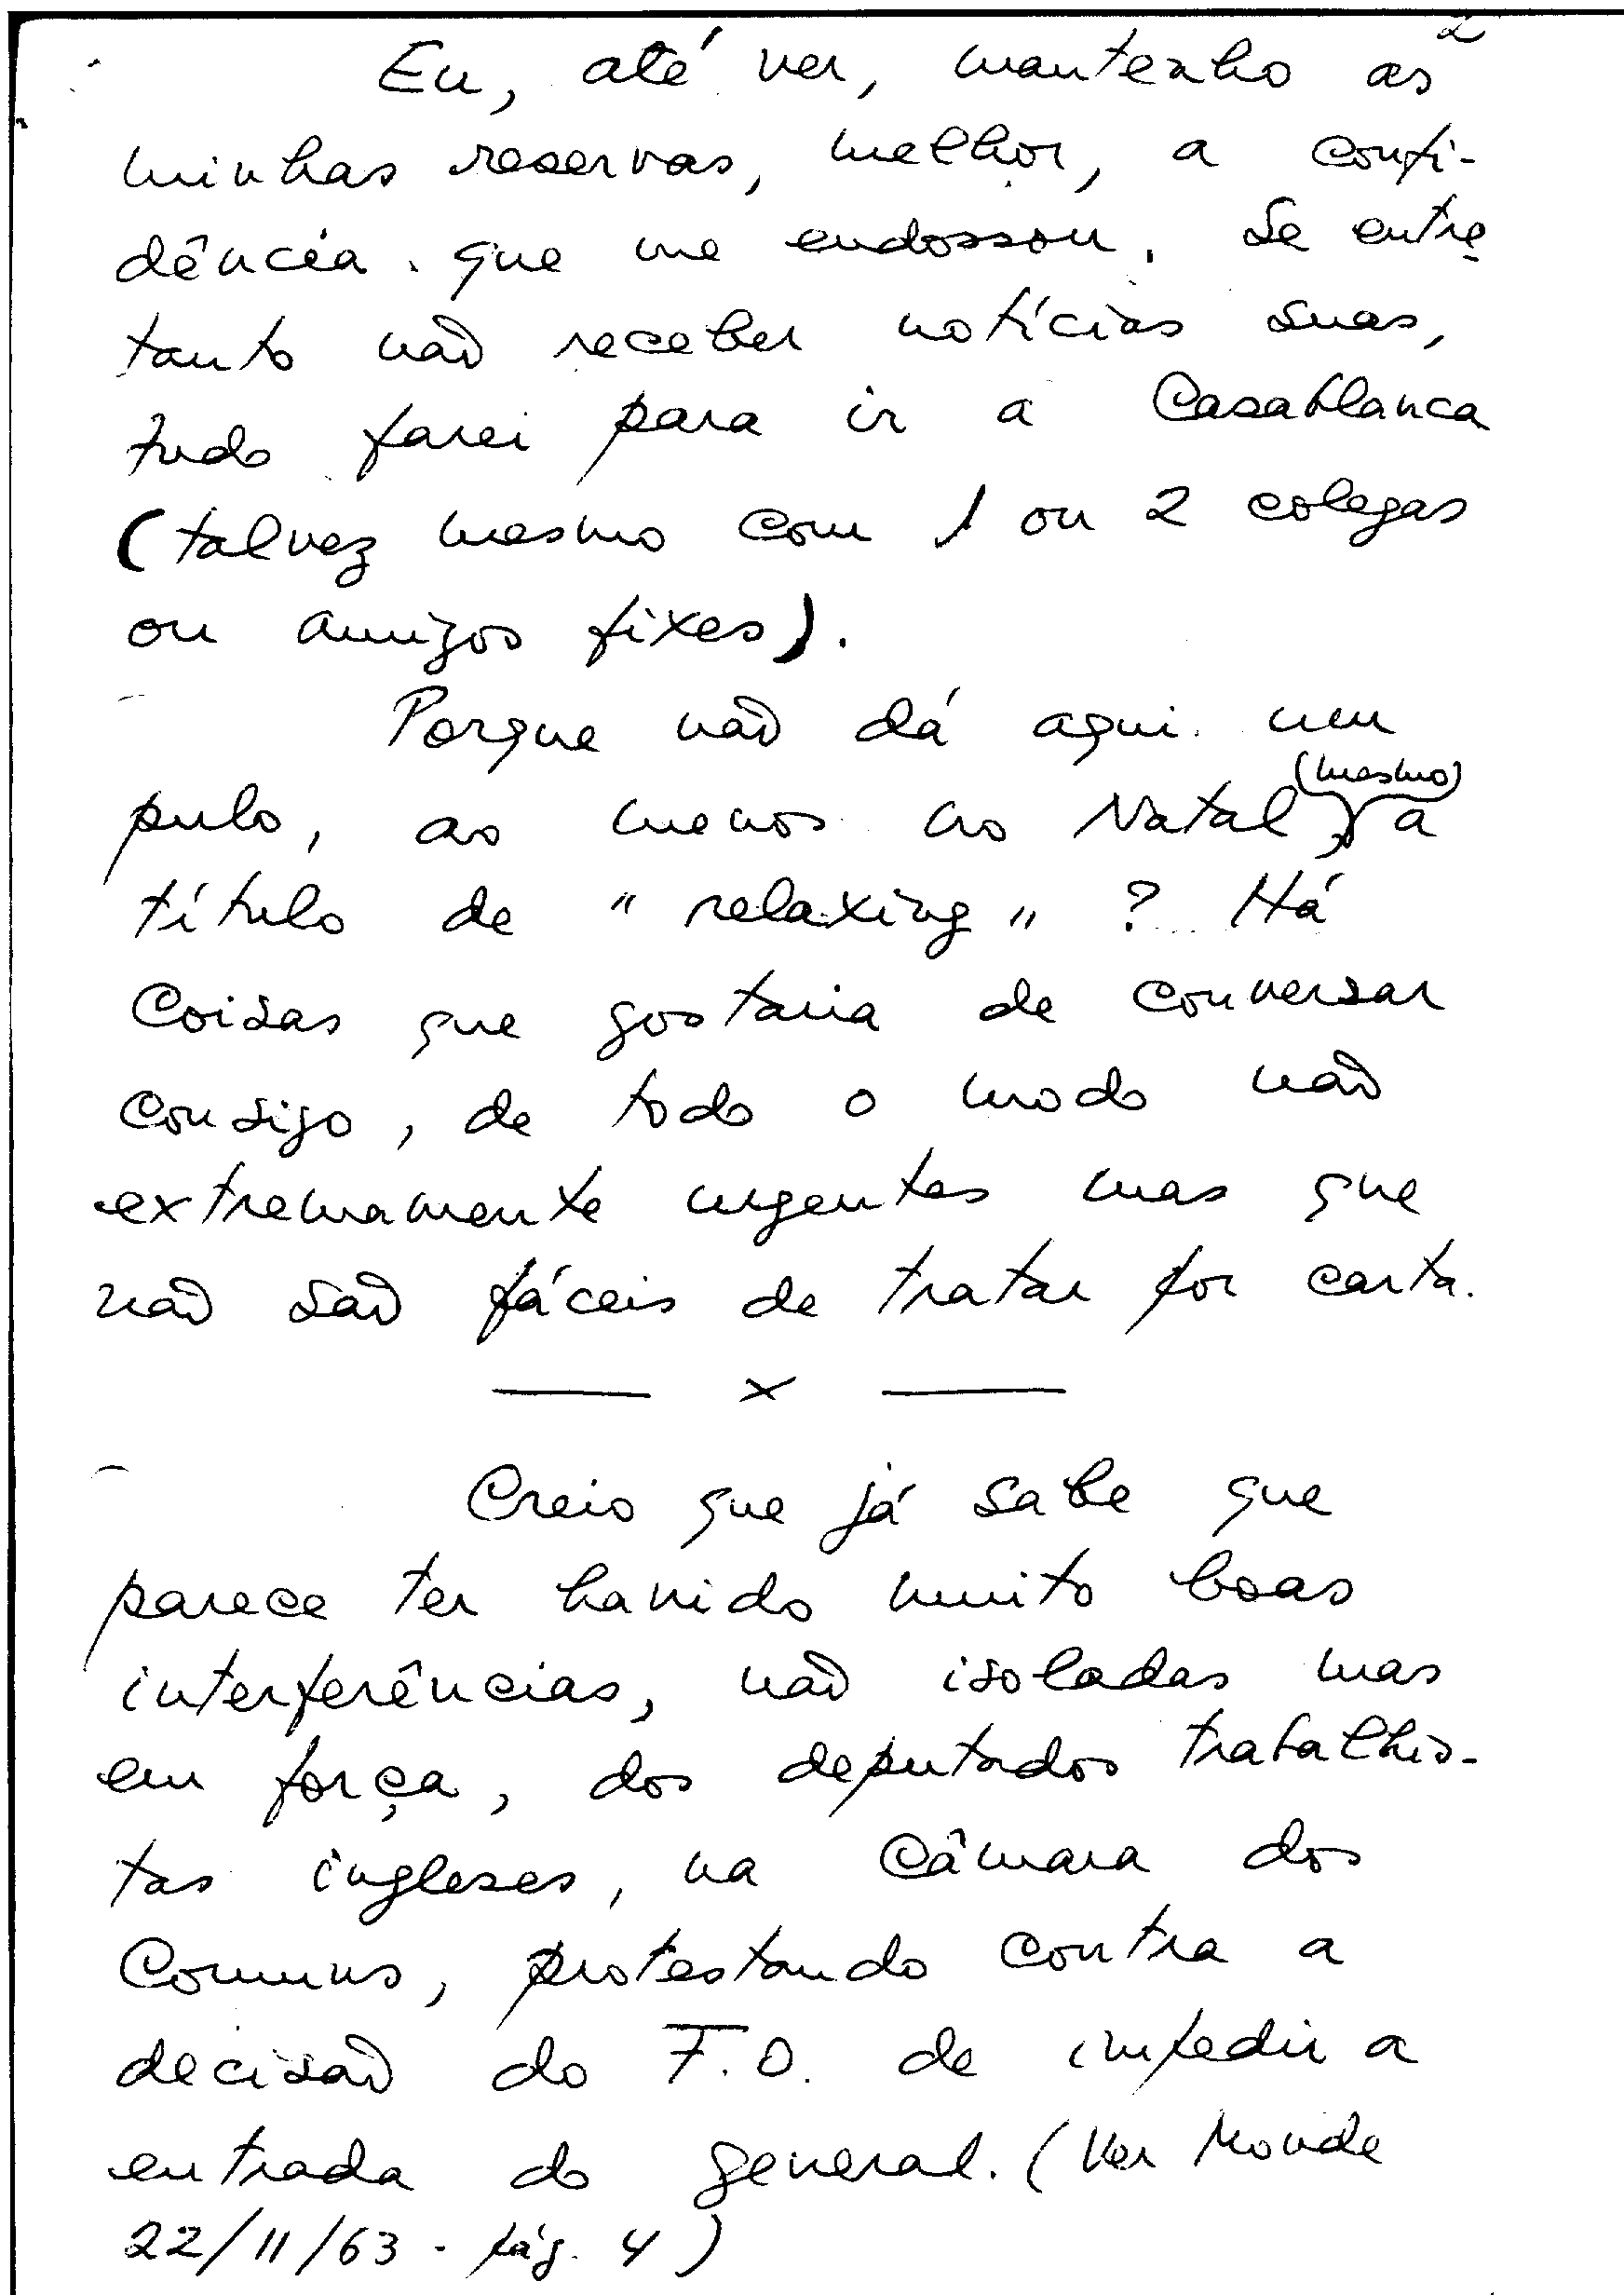 2
Eu, até ver, mantenho as
minhas reservas, melhor, a confi-
dência que me endossou. Se entre-
tanto não receber notícias suas,
tudo farei para ir a Casablanca
(talvez mesmo com 1 ou 2 colegas
ou amigos fixes).
Porque não dá aqui um
(mesmo)
pulo, ao menos no Natal, a
título de "relaxing"? Há
Coisas que gostaria de conversar
consigo, de todo o modo não
extremamente urgentes mas que
não são fáceis de tratar por carta.
— x —
Creio que já sabe que
parece ter havido muito boas
interferências, não isoladas mas
em força, dos deputados trabalhis-
tas ingleses, na Câmara dos
Comuns, protestando contra a
decisão do F.O. de impedir a
entrada do general. (Ver Monde
22/11/63 - pág. 4)